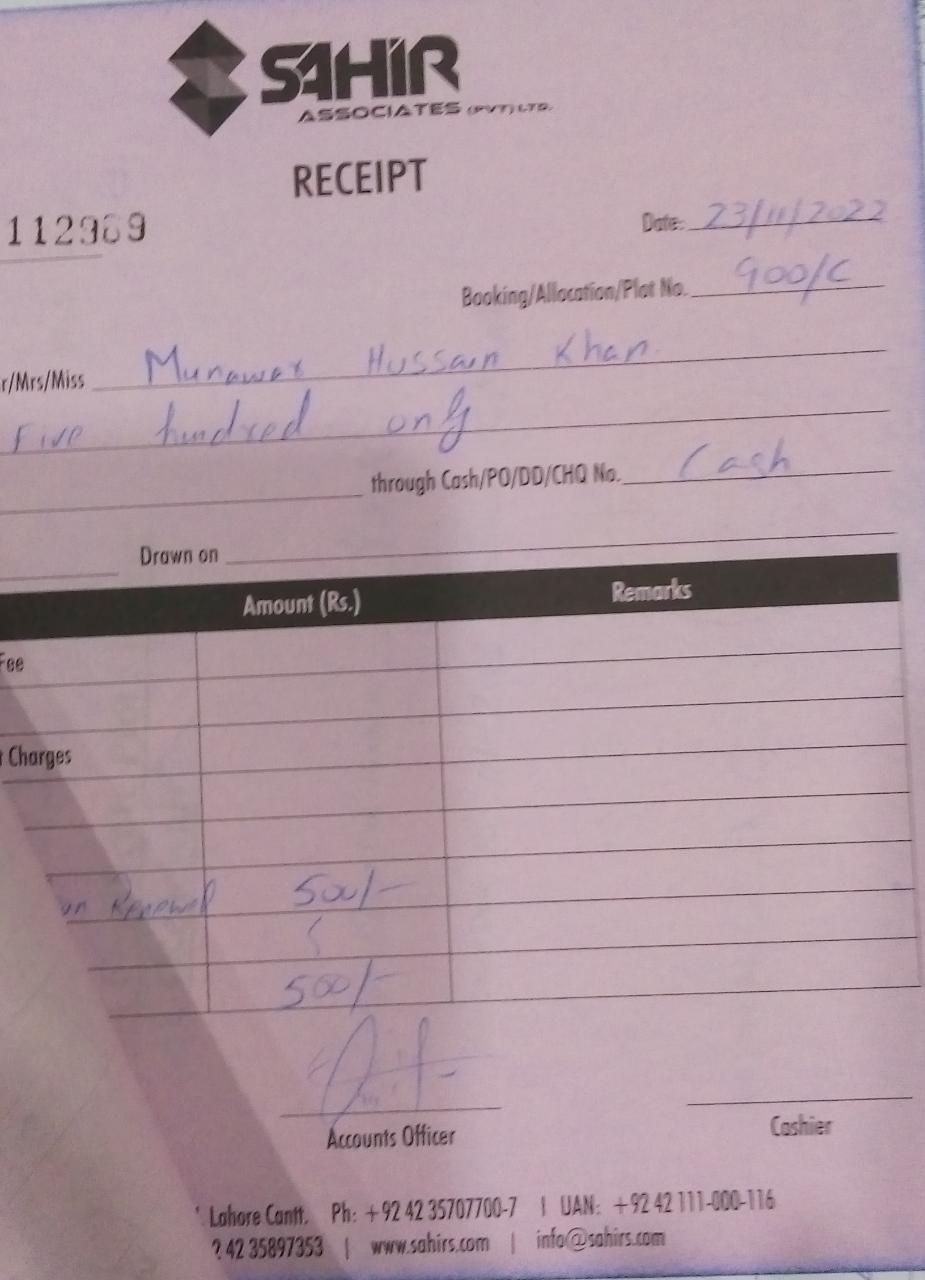 SAHIR
ASSOCIATES (PVT) LTD.
RECEIPT
112969
Date: 23/11/2022
Booking/Allocation/Plot No. 900/C
r/Mrs/Miss Munawar Hussain Khan
Five hundred only
through Cash/PO/DD/CHQ No. Cash
Drawn on
Amount (Rs.) Remarks
Fee
t Charges
on Renewal 500/-
500/-
Accounts Officer Cashier
Lahore Cantt. Ph: +92 42 35707700-7 | UAN: +92 42 111-000-116
2 42 35897353 | www.sahirs.com | info@sahirs.com